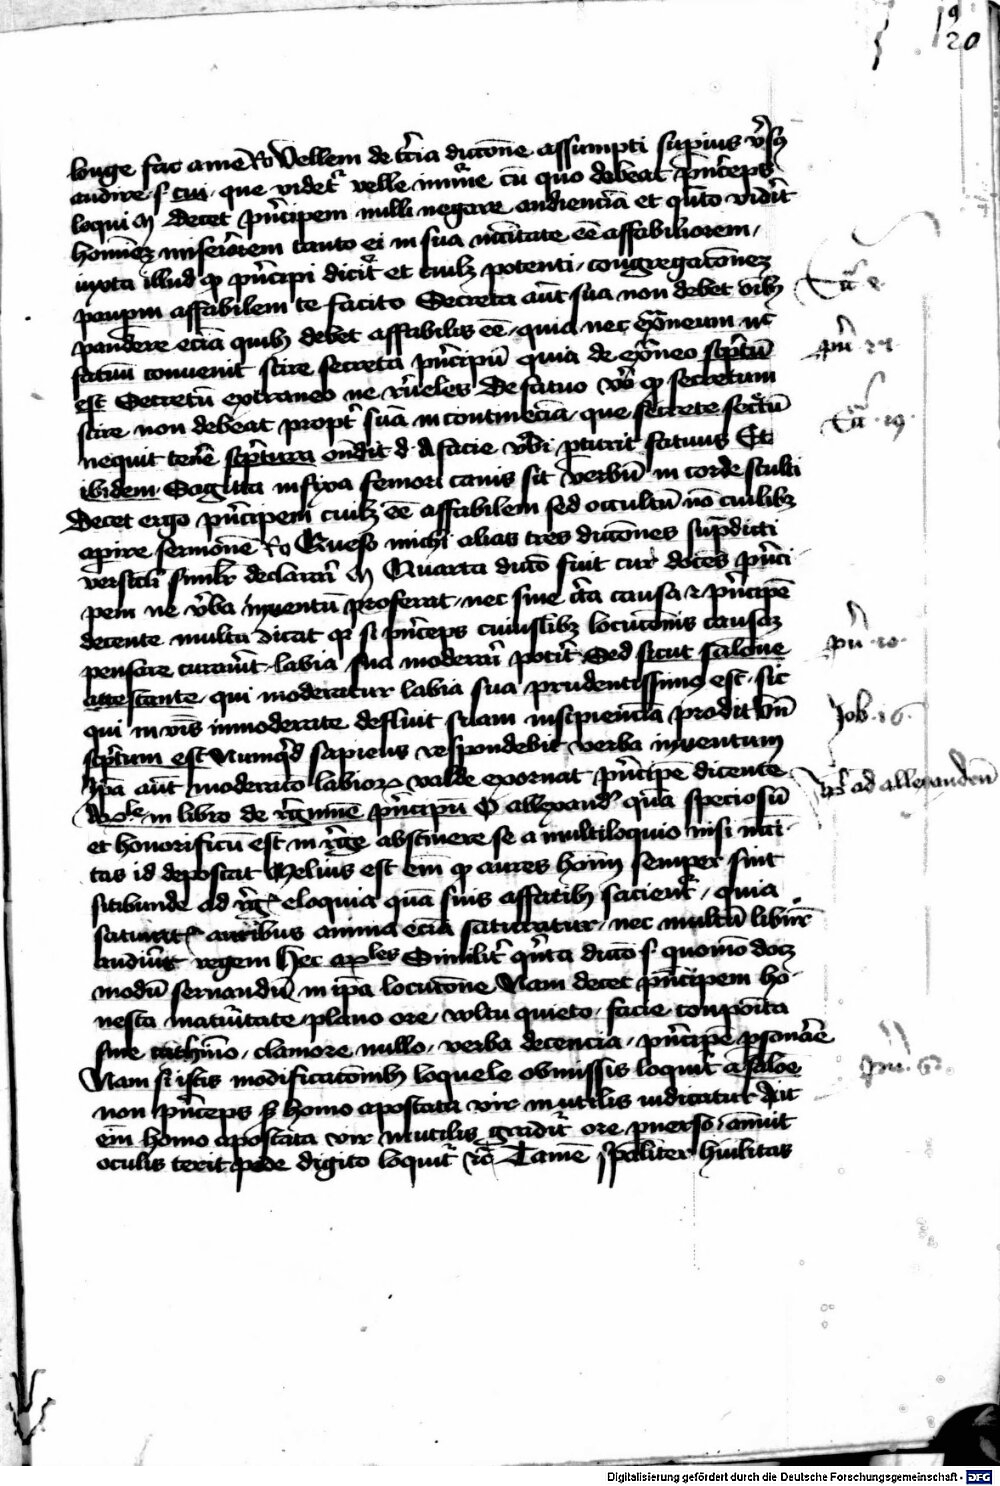 19
20
longe fac a me Ro Vellem de t̄cia dictōne assumpti supius v̄sꝫ
audire .s. cui. que videtr̄ velle innuē̄ cū quo debeat p̄nceps
loqui M Decet p̄ncipem nulli negare audienciā et qūto vidīt
hoīeꝫ miseriorem tanto ei in sua nc̄itate eē affabiliorem /
iuxta illud qꝫ p̄ncipi dicitr̄ et cuilꝫ potenti / congregacōneꝫ
paupm affabilem te facito Secreta aut̄ sua non debet oībꝫ
pandere eciā quibꝫ debet affabilis eē . quia nec ext̄neum nec
fatuū convenit scire secreta p̄ncipū quia de ext̄neo sc̄ptū
est Secretū extraneo ne reueles De fatuo vō qꝫ secretum
scire non debeat propt̄ suā incontinēciā . que secrete secr̄tū
nequit tenē sc̄ptura on̄dit d. A facie vb̄i pturit fatuus Et
ibidem Sagitta infixa femori canis sic verbū in corde stulti
Decet ergo p̄ncipem cuilꝫ eē affabilem sed occultū nō cuilibꝫ
apire sermonē Ro Queso michi alias tres dictōnes sup̄dicti
versiculi simlr̄ declarari M Quarta dictō fuit cur docēs p̄nci
pem ne v̄ba in ventū proferat . nec sine c̄ta causa ⁊ p̄ncipē
decente multa dicat qꝫ si p̄nceps cuiuslibꝫ locucionis causaꝫ
pensare curauīt . labia sua moderari potīt Sed sicut salōne
attestante . qui moderatur labia sua prudentissimꝰ est . sic
qui in v̄bis inmoderate defluit suam insipienciā prodit vn̄
sc̄ptum est Numqͥd sapiens respondebit verba in ventum
Ip̄a aut̄ moderatio labioꝝ valde exornat p̄ncipē dicente
Ar̄le in libro de regimīe p̄ncipū O allexandꝰ qͣm speciosū
et honorificū est in rege abstinere se a multiloquio nisi nc̄i
tas id deposcat Melius est em̄ qꝫ aures hoīm semper sint
sitibunde ad reg. eloquia quā suis affatibꝫ sacientr̄ / quia
saturatꝭ auribus anima eciā saturatur . nec multū libn̄t̄
audiūt regem Hec ar̄les Similit̄ qͥnta dictō .s. quomō doceꝫ
modū seruandū in ip̄a locucōne Nam decet p̄ncipem ho
nesta maturitate . plano ore . vultu quieto . facie composita
sine cachinno . clamore nullo . verba decencia . p̄ncipē psonare
Nam si istis modificacōnibꝫ loquele obmissis loquit̄ a saloē
non p̄nceps sꝫ homo apostata vir inutilis iudicatur dicit
em̄ homo apostata vir inutilis gradit̄ ore puerso / annuit
oculis terit pede digito loquitr̄ ⁊c̄ Tamē sp̄aliter humilitas
pu̅ 10
Job . 16 .
Ar̄ ad allexandrū
Digitalisierung gefördert durch die Deutsche Forschungsgemeinschaft - DFG